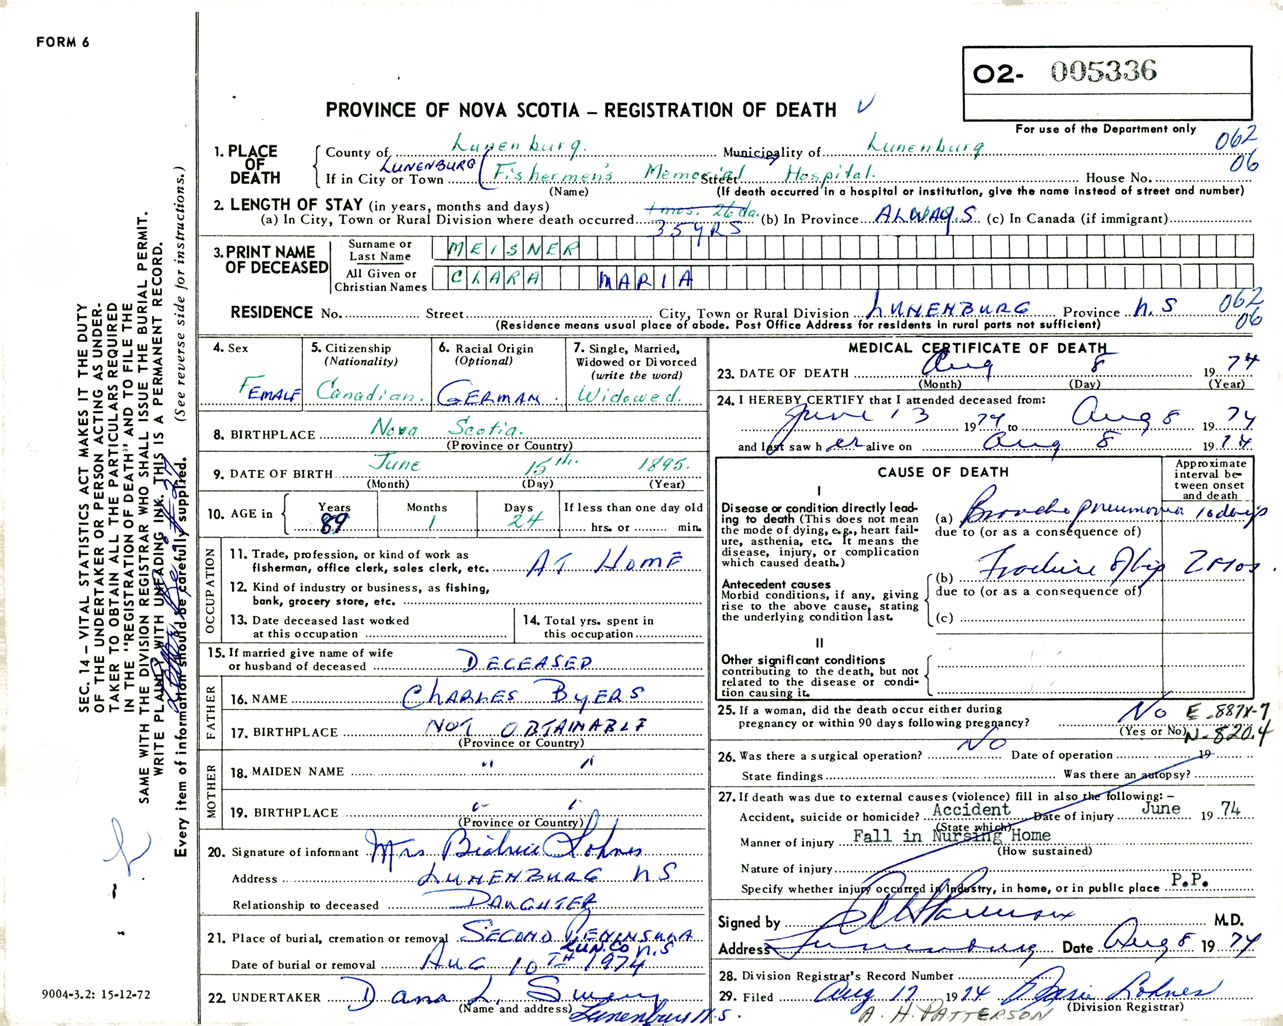 FORM 6
O2- 005336
PROVINCE OF NOVA SCOTIA – REGISTRATION OF DEATH
For use of the Department only
062
06
1. PLACE OF DEATH
County of Lunenburg. Municipality of Lunenburg
If in City or Town LUNENBURG Fishermen's Memorial Hospital. Street House No.
(Name) (If death occurred in a hospital or institution, give the name instead of street and number)
2. LENGTH OF STAY (in years, months and days)
(a) In City, Town or Rural Division where death occurred 1 mos. 26 da. 35 YRS (b) In Province ALWAYS (c) In Canada (if immigrant)
3. PRINT NAME OF DECEASED
Surname or Last Name MEISNER
All Given or Christian Names CLARA MARIA
RESIDENCE No. Street City, Town or Rural Division LUNENBURG Province N.S
062
06
(Residence means usual place of abode. Post Office Address for residents in rural parts not sufficient)
4. Sex FEMALE
5. Citizenship (Nationality) Canadian.
6. Racial Origin (Optional) GERMAN
7. Single, Married, Widowed or Divorced (write the word) Widowed.
8. BIRTHPLACE Nova Scotia.
(Province or Country)
9. DATE OF BIRTH June 15th 1895.
(Month) (Day) (Year)
10. AGE in Years 89 Months 1 Days 24 If less than one day old
hrs. or min.
OCCUPATION
11. Trade, profession, or kind of work as fisherman, office clerk, sales clerk, etc. AT HOME
12. Kind of industry or business, as fishing, bank, grocery store, etc.
13. Date deceased last worked at this occupation
14. Total yrs. spent in this occupation
15. If married give name of wife or husband of deceased DECEASED
FATHER
16. NAME CHARLES BYERS
17. BIRTHPLACE NOT OBTAINABLE
(Province or Country)
MOTHER
18. MAIDEN NAME " "
19. BIRTHPLACE " "
(Province or Country)
20. Signature of informant Mrs Beatrice Lohnes
Address LUNENBURG NS
Relationship to deceased DAUGHTER
21. Place of burial, cremation or removal SECOND PENINSULA
LUN. CO N.S
Date of burial or removal AUG 10TH 1974
22. UNDERTAKER Dana L. Sweeny
(Name and address) Lunenburg N.S.
MEDICAL CERTIFICATE OF DEATH
23. DATE OF DEATH Aug 8 1974
(Month) (Day) (Year)
24. I HEREBY CERTIFY that I attended deceased from:
June 13 1974 to Aug 8 1974
and last saw her alive on Aug 8 1974
CAUSE OF DEATH
Approximate interval between onset and death
I
Disease or condition directly leading to death (This does not mean the mode of dying, e.g., heart failure, asthenia, etc. It means the disease, injury, or complication which caused death.)
(a) Bronchopneumonia 10 days
due to (or as a consequence of)
Antecedent causes
Morbid conditions, if any, giving rise to the above cause, stating the underlying condition last.
(b) Fracture of hip 2 mos.
due to (or as a consequence of)
(c)
II
Other significant conditions
contributing to the death, but not related to the disease or condition causing it.
25. If a woman, did the death occur either during pregnancy or within 90 days following pregnancy? No
(Yes or No)
E-887X-7
N-820.4
26. Was there a surgical operation? No Date of operation 19
State findings Was there an autopsy?
27. If death was due to external causes (violence) fill in also the following: –
Accident, suicide or homicide? Accident Date of injury June 1974
(State which)
Manner of injury Fall in Nursing Home
(How sustained)
Nature of injury
Specify whether injury occurred in industry, in home, or in public place P.P.
Signed by M.D.
Address Lunenburg Date Aug 8 1974
28. Division Registrar's Record Number
29. Filed Aug 12 1974 Lohnes
(Division Registrar)
A. H. PATTERSON
SEC. 14 – VITAL STATISTICS ACT MAKES IT THE DUTY
OF THE UNDERTAKER OR PERSON ACTING AS UNDER-
TAKER TO OBTAIN ALL THE PARTICULARS REQUIRED
IN THE "REGISTRATION OF DEATH" AND TO FILE THE
SAME WITH THE DIVISION REGISTRAR WHO SHALL ISSUE THE BURIAL PERMIT.
WRITE PLAINLY WITH UNFADING INK. THIS IS A PERMANENT RECORD.
Every item of information should be carefully supplied. (See reverse side for instructions.)
9004-3.2: 15-12-72